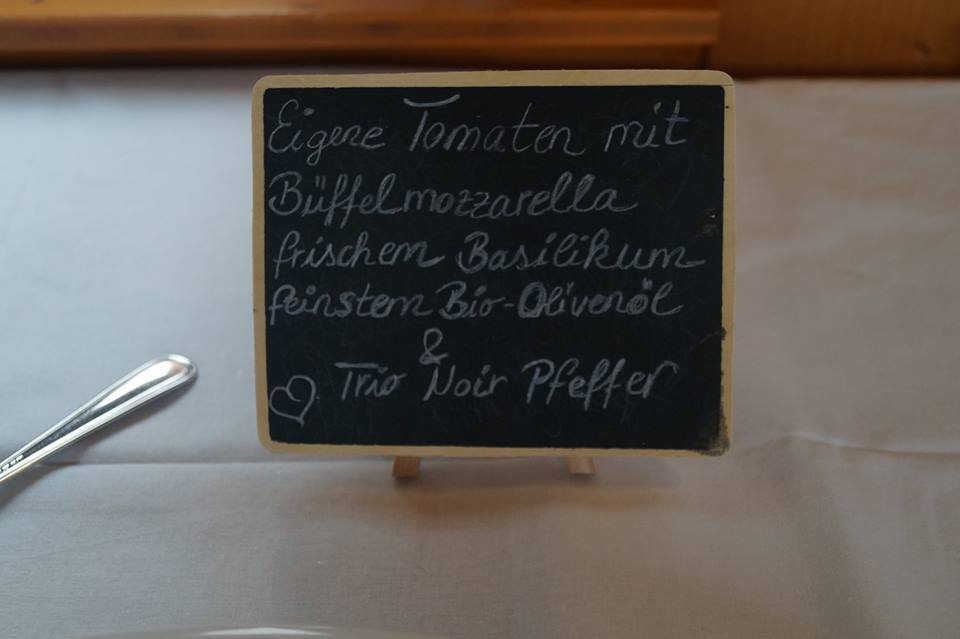 Eigene Tomaten mit
Büffelmozzarella
frischem Basilikum
feinstem Bio-Olivenöl
&
Trio Noir Pfeffer